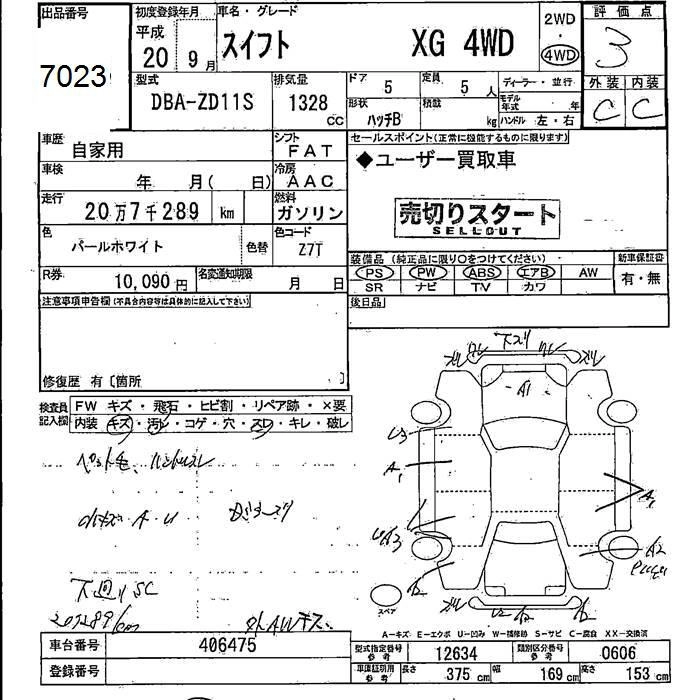 出品番号
7023
初度登録年月
平成
20 9月
車名・グレード
スイフト XG 4WD
2WD
・
4WD
評価点
3
外装 内装
C C
型式
DBA-ZD11S
排気量
1328 CC
ドア 5
定員 5人
ディーラー・並行
形状 ハッチB
積載 kg
モデル年式 年
ハンドル 左・右
車歴
自家用
シフト
FAT
セールスポイント(正常に機能するものに限ります)
◆ユーザー買取車
車検
年 月( 日)
冷房
AAC
走行
20万7千289 km
燃料
ガソリン
売切りスタート
SELLOUT
色
パールホワイト
色替
色コード
Z7T
装備品(純正品に限り○をつけてください)
新車保証書
PS PW ABS エアB AW
SR ナビ TV カワ
有・無
R券
10,090円
名変通知期限
月 日
後日品
注意事項申告欄(不具合内容等は具体的に記入して下さい)
修復歴 有〔箇所 〕
検査員記入欄
FW キズ・飛石・ヒビ割・リペア跡・×要
内装 キズ・汚レ・コゲ・穴・スレ・キレ・破レ
ペット毛、ハンドルスレ
小キズ A・U
下廻りSC
207289km
外AWキズ、
下スリ
A1
U3
A1
A1
UA3
A2
A2
U2
A2
スペア
A-キズ E-エクボ U-凹み W-補修跡 S-サビ C-腐食 XX-交換済
車台番号
406475
登録番号
型式指定番号 参考 12634
類別区分番号 参考 0606
車庫証明用 参考 長さ 375 cm 幅 169 cm 高さ 153 cm